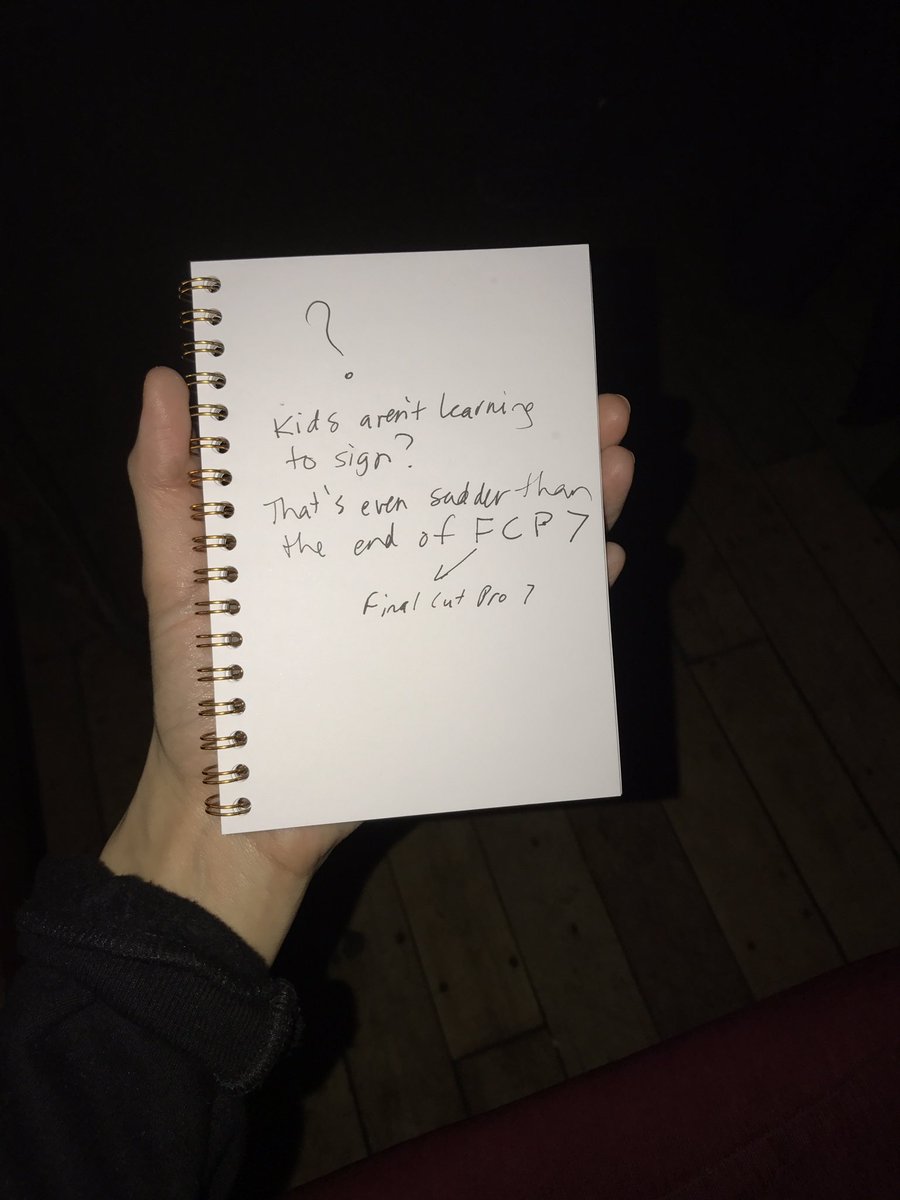 ?
Kids aren't learning
to sign?
That's even sadder than
the end of FCP7
Final Cut Pro 7